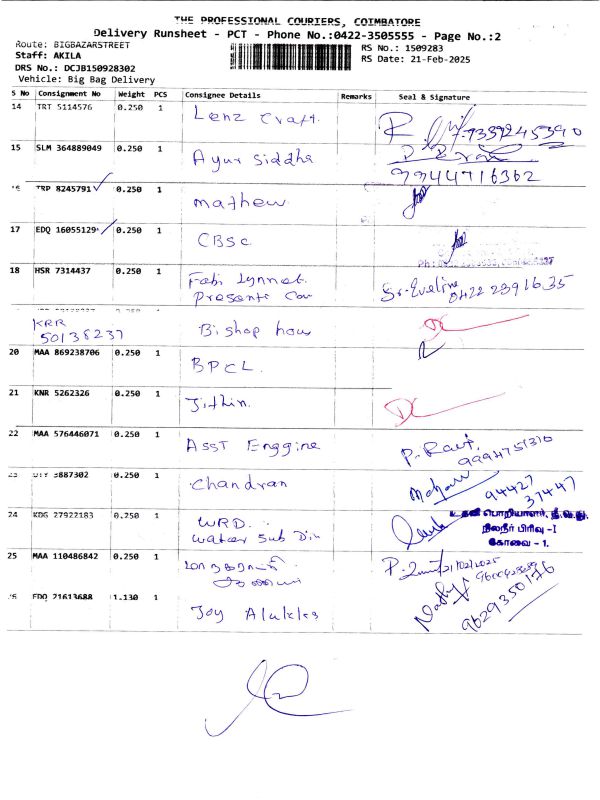 THE PROFESSIONAL COURIERS, COIMBATORE
Delivery Runsheet - PCT - Phone No.:0422-3505555 - Page No.:2
Route: BIGBAZARSTREET
Staff: AKILA
DRS No.: DCJB150928302
Vehicle: Big Bag Delivery
RS No.: 1509283
RS Date: 21-Feb-2025
S No Consignment No Weight PCS Consignee Details Remarks Seal & Signature
14 TRT 5114576 0.250 1 Lenz Craft. 9339245390
15 SLM 364889049 0.250 1 Ayur Siddha 9944716362
TRP 8245791 0.250 1 mathew
17 EDQ 16055129 0.250 1 CBSC
18 HSR 7314437 0.250 1 Fabi Lynnet. Sr. Eveline
Presents Con 0422 2391635
KRR
50138237 Bishop hou
20 MAA 869238706 0.250 1 BPCL.
21 KNR 5262326 0.250 1 Jithin.
22 MAA 576446071 0.250 1 Asst Enggine P. Ravi,
9994751310
3887302 0.250 1 Chandran Mohan 94427
37447
24 KDG 27922183 0.250 1 WRD.
Water Sub Din
உதவி பொறியாளர், நீ.வ.து.
நிலநீர் பிரிவு -I
கோவை - 1.
25 MAA 110486842 0.250 1 மாநகராட்சி 21/02/2025
EDQ 21613688 1.130 1 Joy Alukkas 9629350176